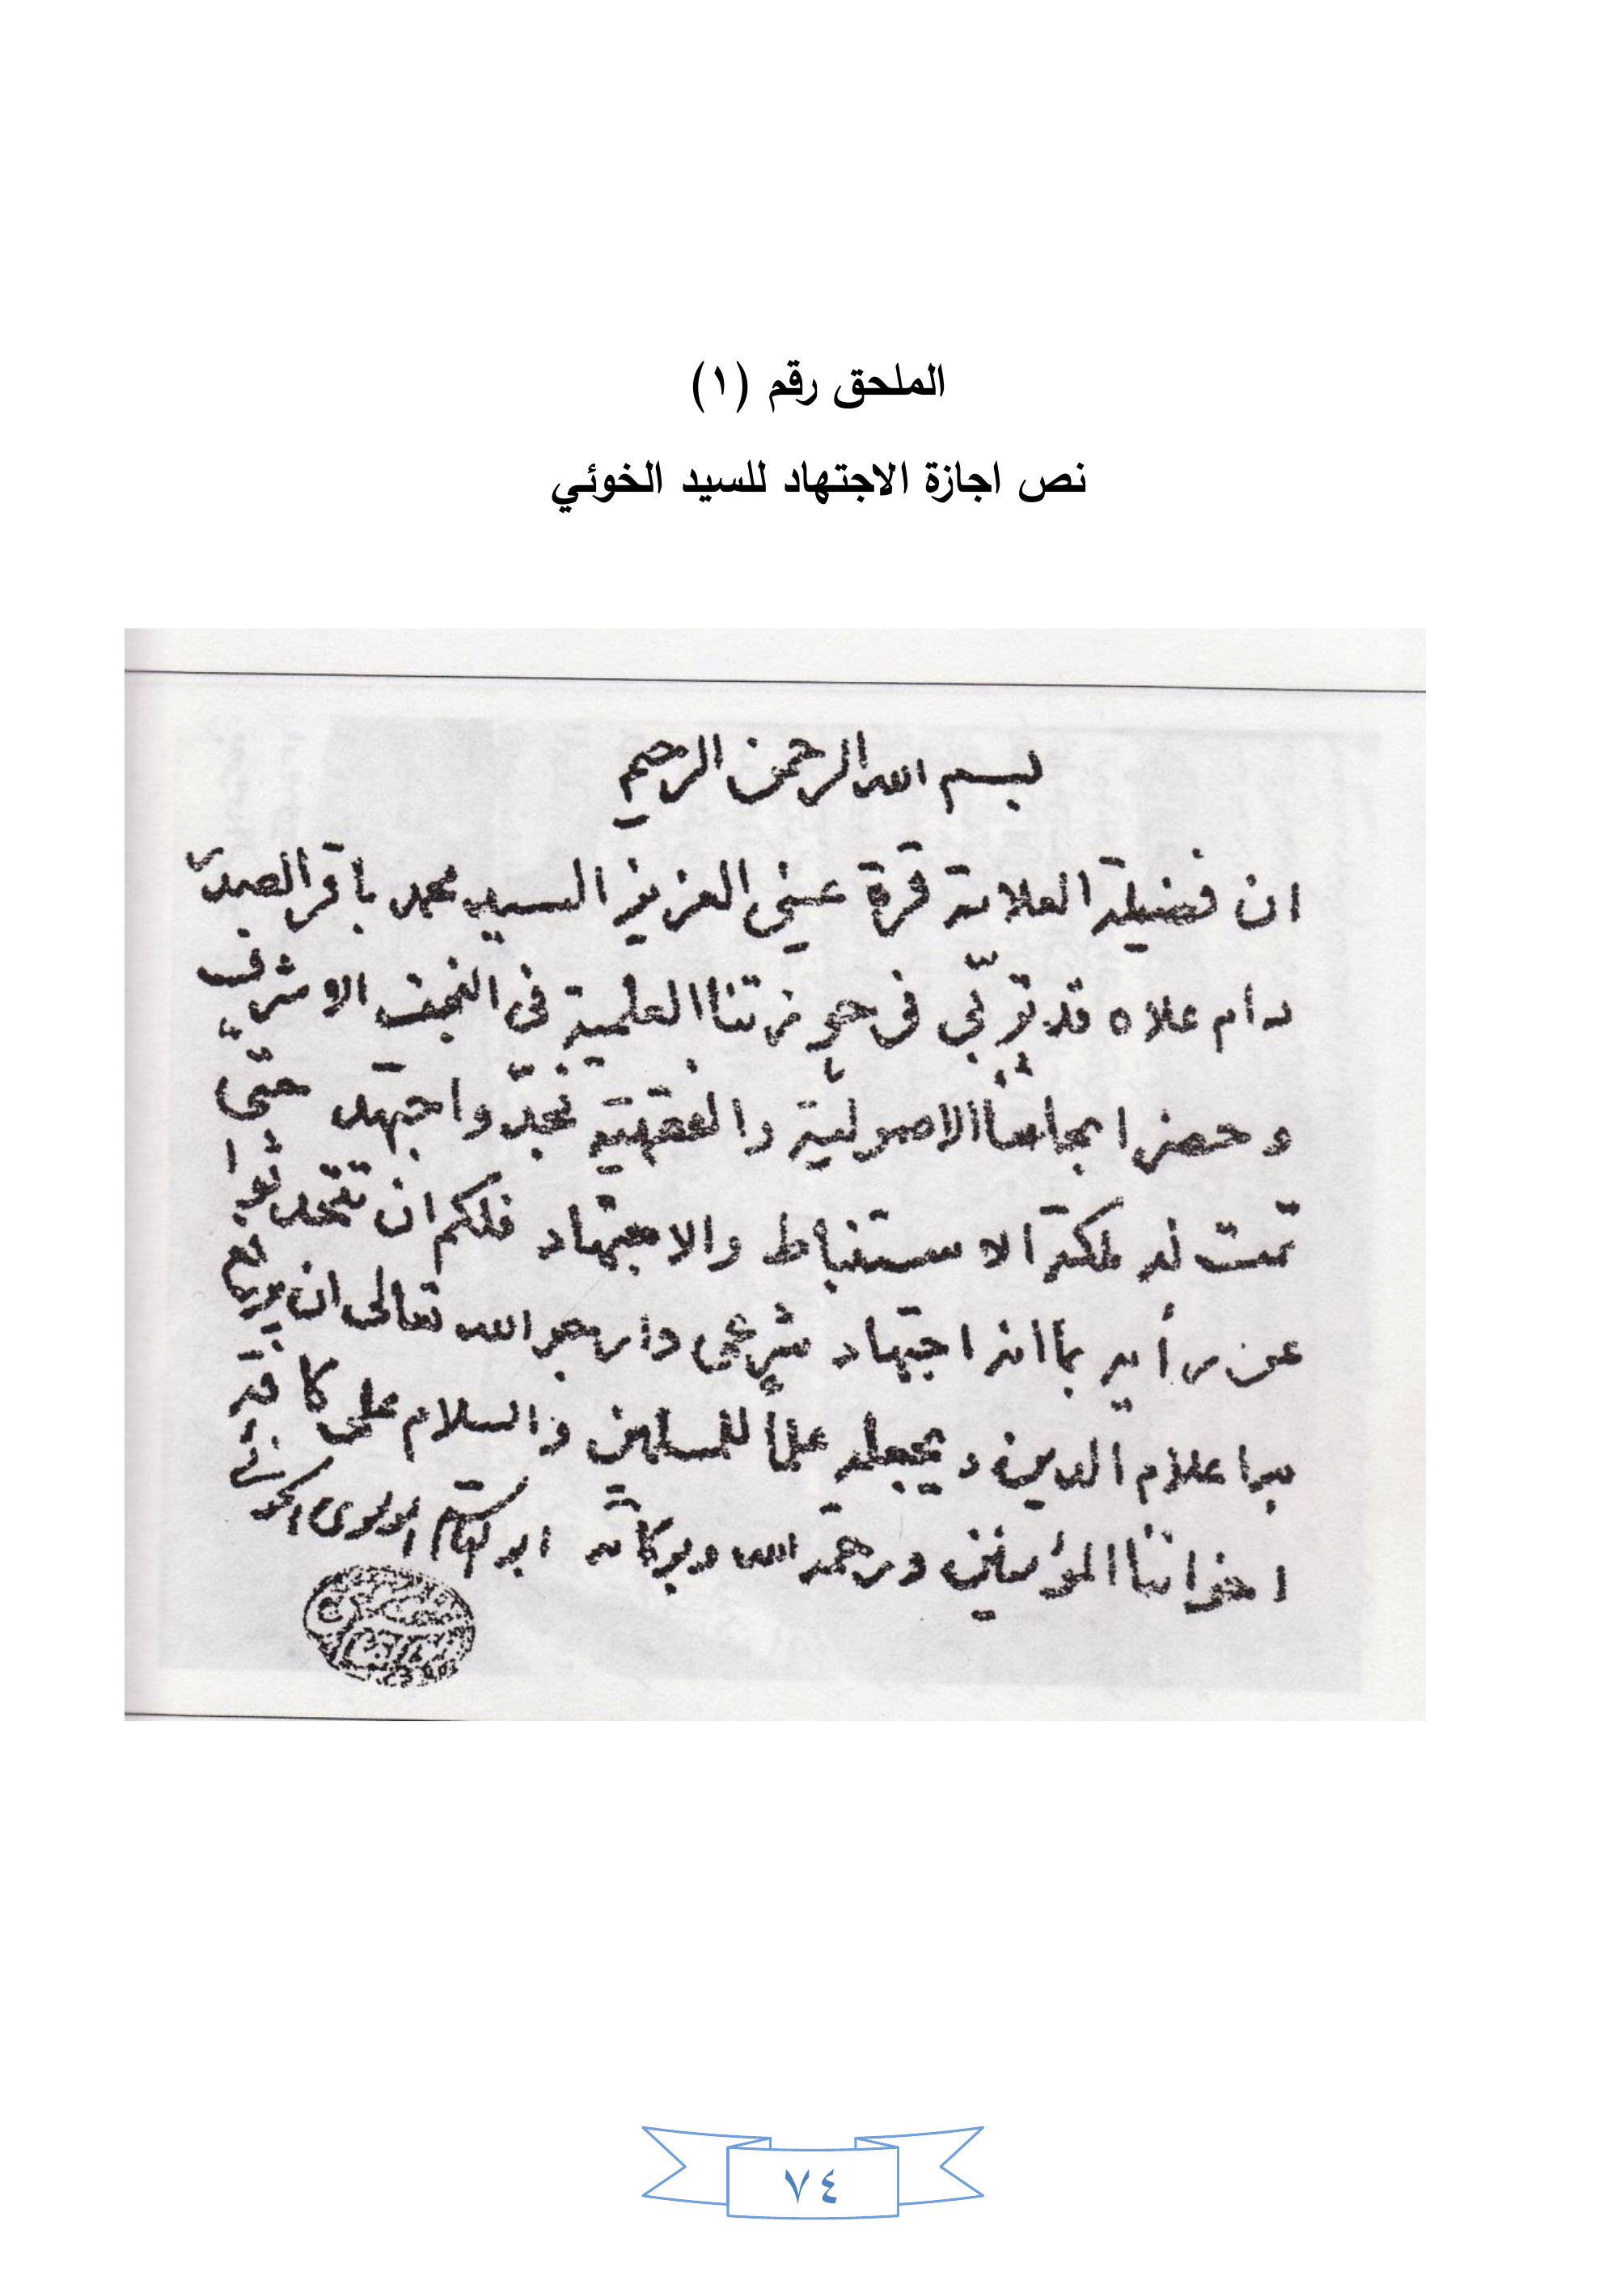 الملحق رقم (١)
نص اجازة الاجتهاد للسيد الخوئي
بسم الله الرحمن الرحيم
ان فضيلة العلامة قرة عيني العزيز السيد محمد باقر الصدر
دام علاه قد تربّى في حوزتنا العلمية في النجف الاشرف
و حضر ابحاثنا الاصولية والفقهية فجدّ واجتهد حتى
تمت له ملكة الاستنباط والاجتهاد فلكم ان تتحدثوا
عن رأيه بما انه اجتهاد شرعي وارجو الله تعالى ان يرفع
به اعلام الدين و يجعله علماً للمسلمين والسلام على كافة
اخواننا المؤمنين ورحمة الله وبركاته ابو القاسم الموسوي الخوئي
٧٤